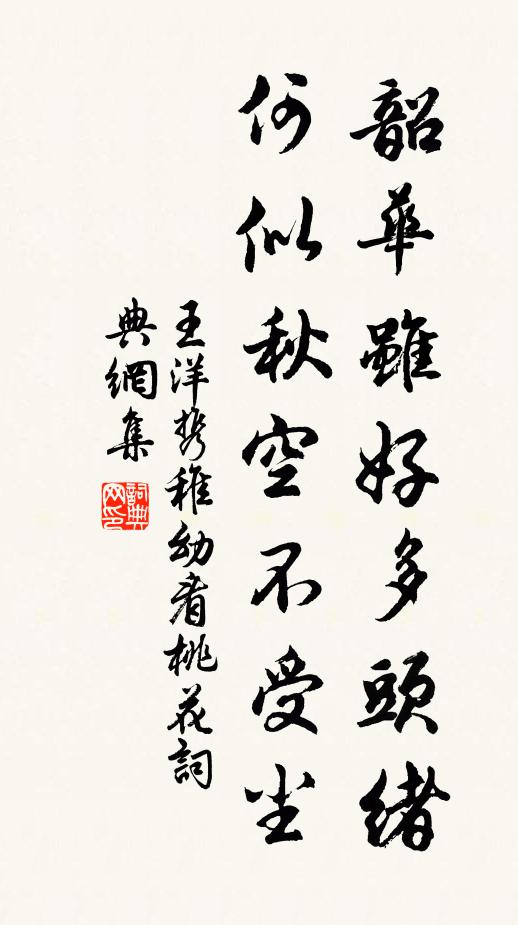 韶華雖好多頭緒
何似秋空不受尘
王洋携稚幼看桃花詞
典網集
詞典
网印